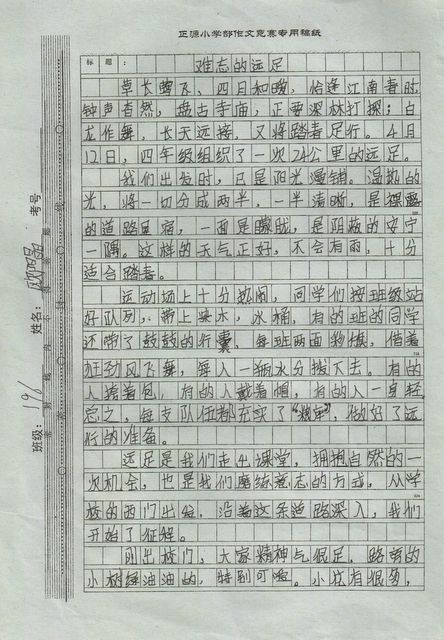 正源小学部作文竞赛专用稿纸
标题： 难忘的远足
草长莺飞，四月和暖，恰逢江南春时
钟声杳然，盘古寺庙，正要深林打探；白
龙作舞，长天远接，又将踏春足行。4月
12日，四年级组织了一次24公里的远足。
我们出发时，已是阳光漫铺。温热的
光，将一切分成两半，一半清晰，是裸露
的道路里宿，一面是朦胧，是阴蔽的安宁
一隅。这样的天气正好，不会有雨，十分
适合踏春。
运动场上十分热闹，同学们按班级站
好队列，带上柴火，水桶，有的班的同学
还带了鼓鼓的行囊，每班两面彩旗，借着
狂劲风飞舞，每人一瓶水分拨下去。有的人
人挎着包，有的人戴着帽，有的人一身轻
总之，每支队伍都充实了“粮草”，做好了远
行的准备。
远足是我们走出课堂，拥抱自然的一
次机会，也是我们磨练意志的方式，从学
校的西门出发，沿着这条道路深入，我们
开始了征程。
刚出校门，大家精神气很足，路旁的
小树绿油油的，特别可爱。小花有很多，
考号
姓名：
班级： 196